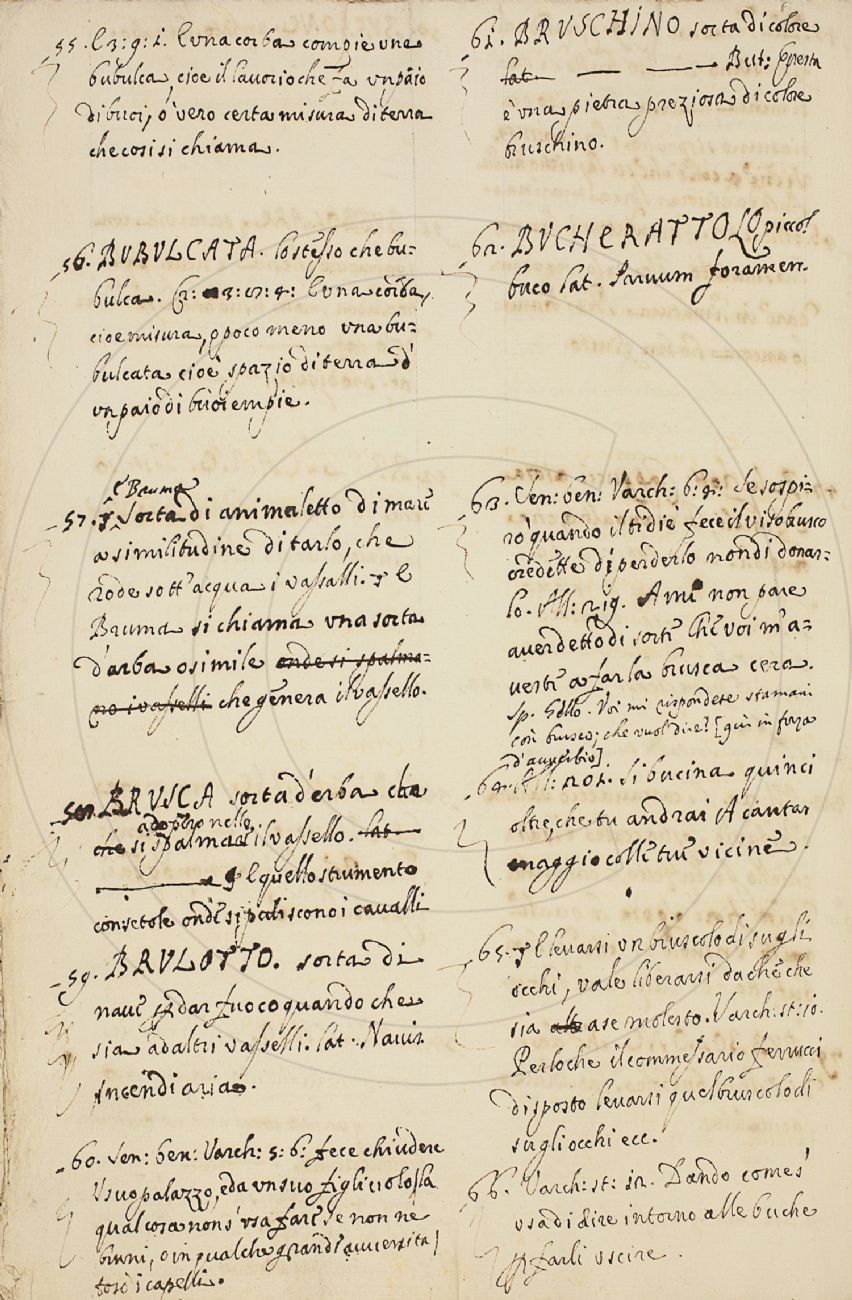 55. C 3: 9: 1. E una corba compie una
bubulca, cioe il lauorio che fa un paio
di buoi, o' vero certa misura di terra
che cosi si chiama.
56. BUBULCATA. lo stesso che bu=
bulca. Cr: 3: 17: 4: E una corba,
cioe misura, o poco meno una bu=
bulcata cioe' spazio di terra d'
un paio di buoi empie.
e Bruma
57. Sorta di animaletto di mare
a similitudine di tarlo, che
rode sott'acqua i vassalli. E
Bruma si chiama una sorta
d'arba o simile onde si spalma=
no i vasselli che genera il vassello.
58. BRUSCA sorta d'erba che
adoperò nello
che si spalmare il vassello. lat.
E quello strumento
con setole onde si puliscono i cavalli
59. BRULOTTO. sorta di
naue p dar fuoco quando che
sia ad altri vasselli. lat. Nauis
Incendiaria.
60. Sen: ben: Varch: 5: 6: fece chiudere
il suo palazzo, ed a un suo figliciolo, la
qual cosa non s'usa fare se non ne'
bruni, o in qualche grande auuersita',
tose' i capelli.
61. BRUSCHINO sorta di colore
lat. But: Questa
è una pietra preziosa di colore
bruschino.
62. BUCHERATTOLO piccol
buco lat. Paruum foramen.
63. Sen: ben: Varch: 6: 4: Se sospi=
rò quando il ti diè fece il viso brusco
credette di perderlo non di donar=
lo. All: 219. A mi non pare
auer detto di sorte che voi m'a=
ueste a far la brusca cera.
Sp. Voi mi rispondete stamani
così brusco; che vuol dire? [qui in forza
d'auuerbio].
64. All: 202. Si bucina quinci
oltre, che tu andrai A cantar
maggio colle tue vicine.
65. E leuarsi un bruscolo di sugli
occhi, vale liberarsi da che che
sia a se molesto. Varch: st: 10.
Perloche il commessario Ferrucci
disposto leuarsi quel bruscolo di
sugli occhi ecc.
66. Varch: st: 12. Dando come s'
usa di dire intorno alle buche
p farli uscire.